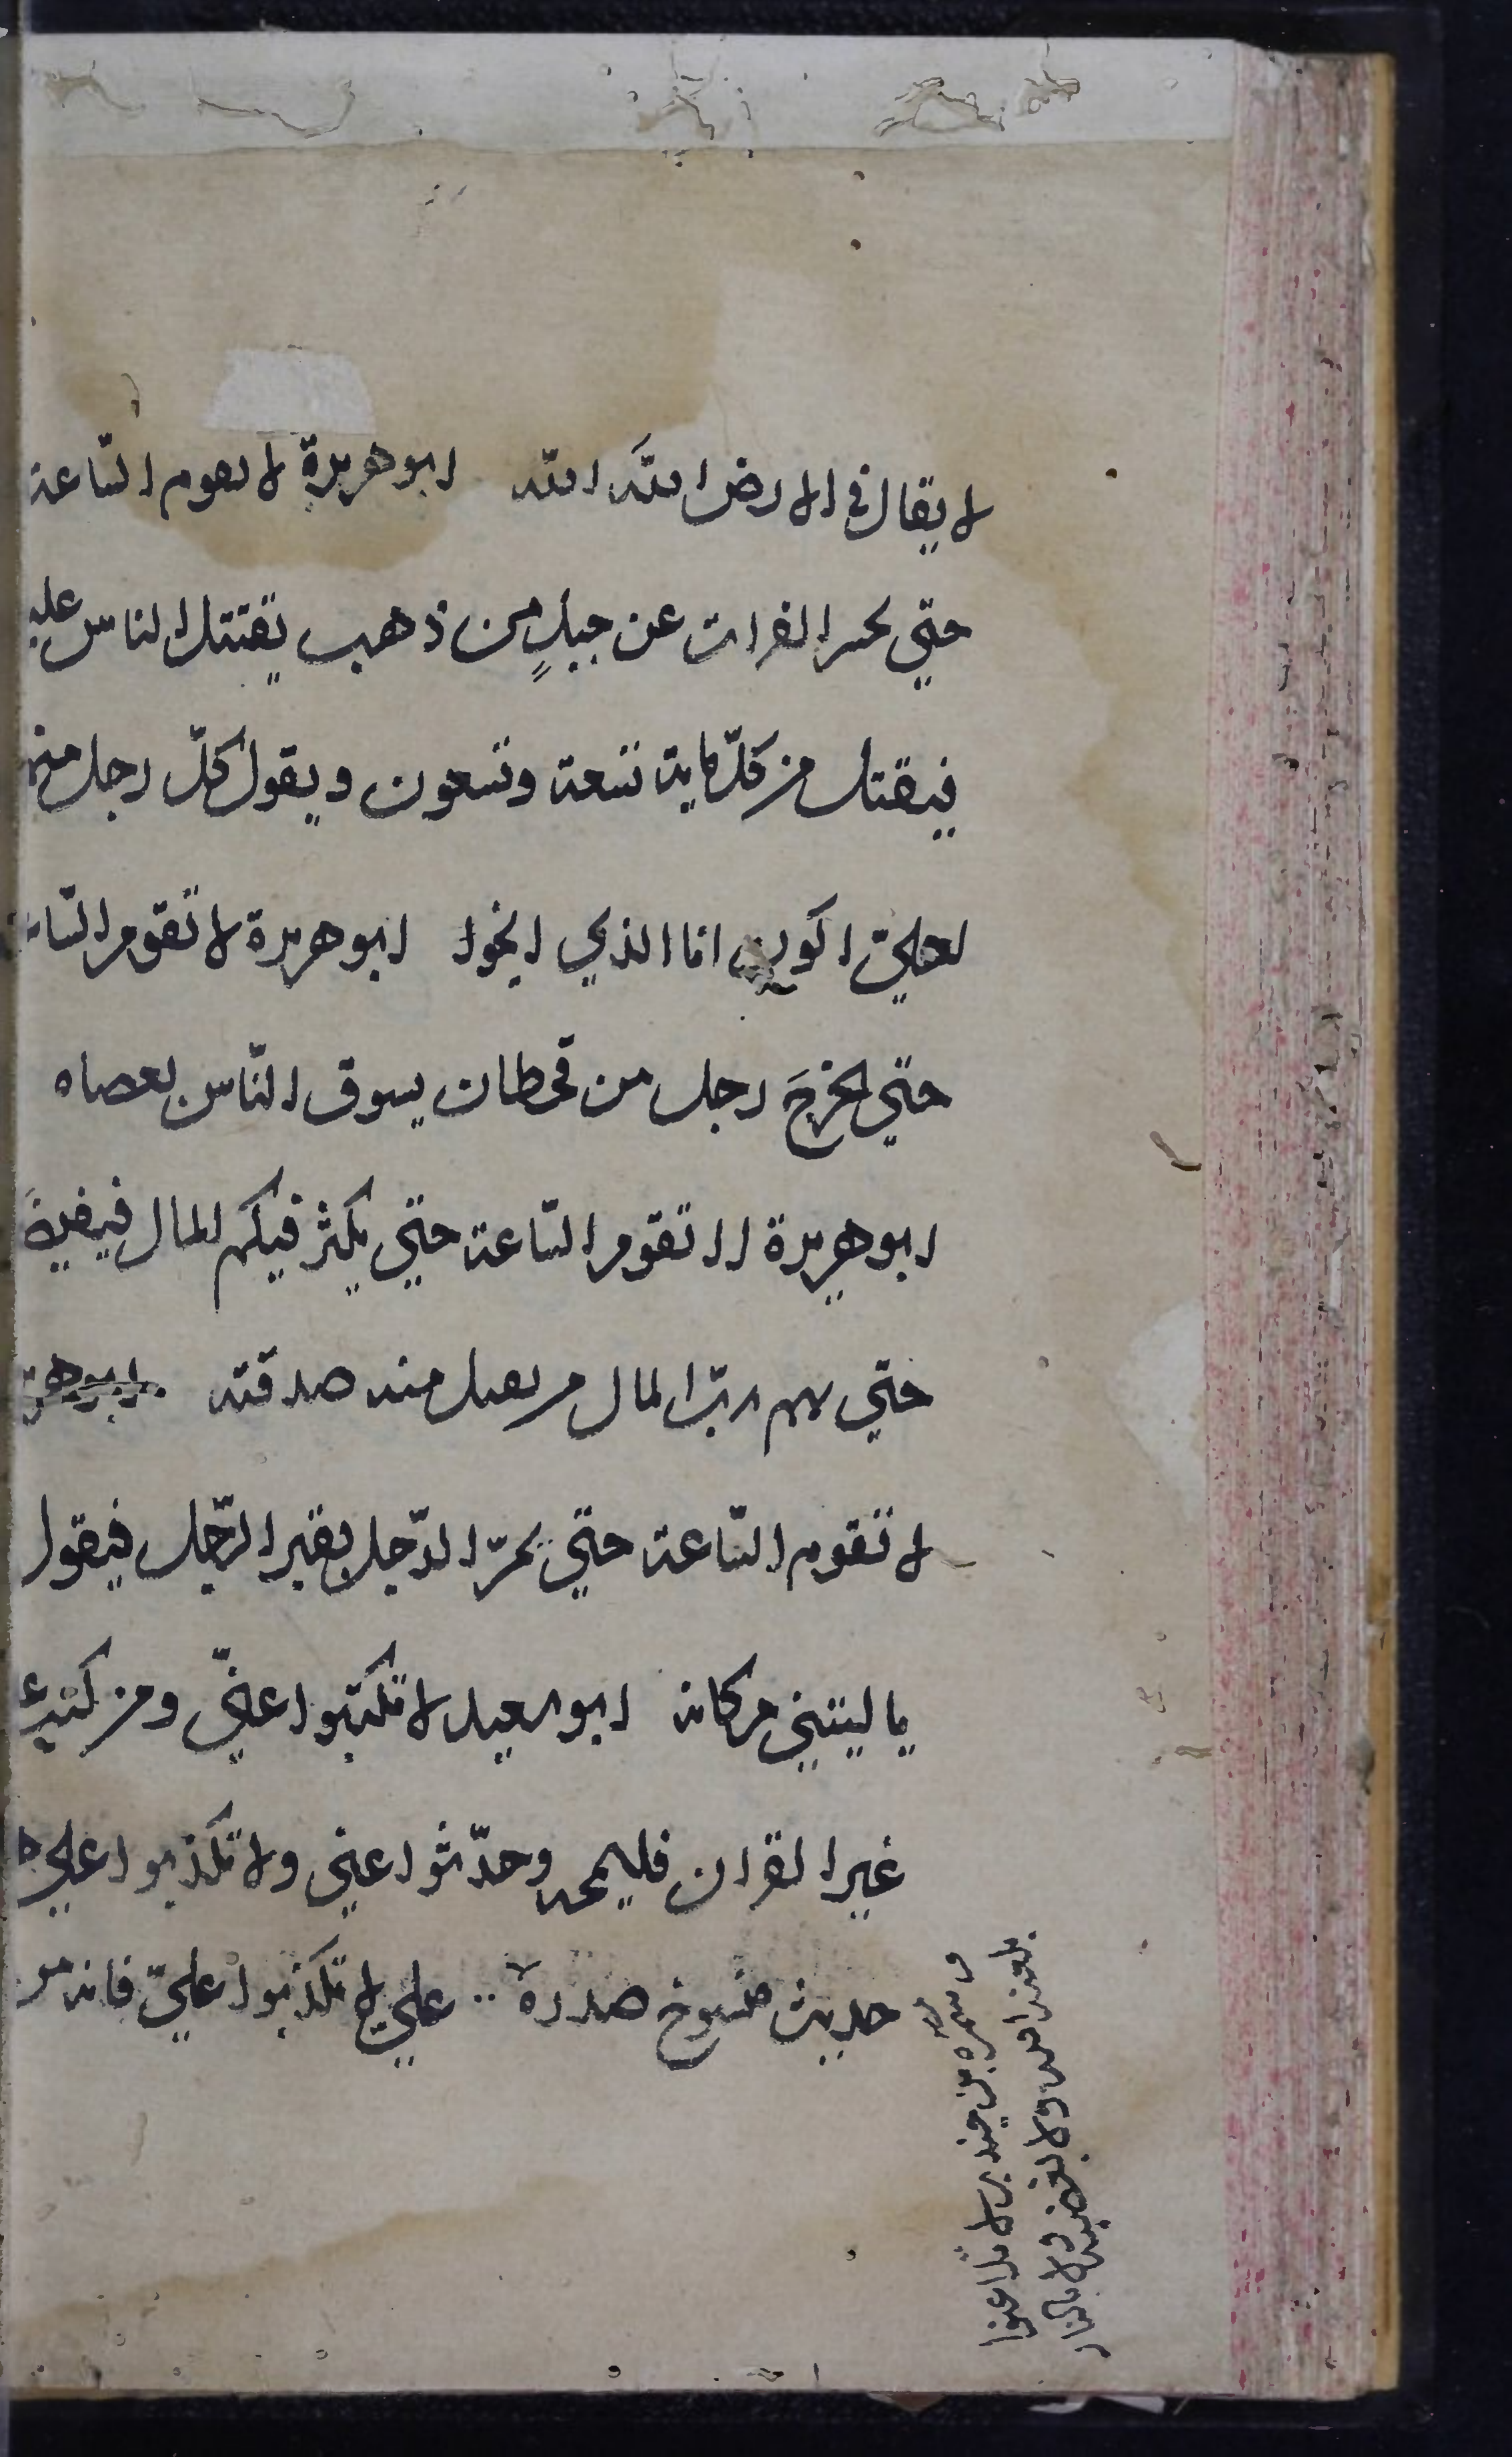 لا يقال في الارض الله الله ابو هريرة لا تقوم الساعة
حتي يحسر الفرات عن جبلٍ من ذهب يقتتل الناس عليه
فيقتل من كلّ ماية تسعة وتسعون ويقول كلّ رجل منهم
لعليّ اكون انا الذي انجوا ابو هريرة لا تقوم السّاعة
حتي يخرجَ رجل من قحطان يسوق النّاس بعصاه
ابو هريرة لا تقوم السّاعة حتي يكثر فيكم المال فيفيضَ
حتي يهم ربّ المال من يقبل منه صدقته ابو هريرة
لا تقوم السّاعة حتي يمرّ الرّجل بقبر الرّجل فيقول
يا ليتني مكانه ابو سعيد لا تكتبوا عنّي ومن كتب عني
غير القران فليمحه وحدّثوا عني ولا تكذبوا علي
حديث منسوخ صدره علي لا تكذبوا عليّ فانه من
سمرة بن جندب لا تلاعنوا
بلعنة الله ولا بغضبه ولا بالنار